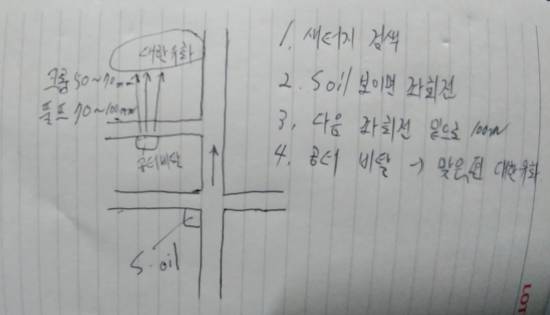 대한유화
크롬 50~70mm
풀프 70~100mm
공터비탈
S-oil
1. 새터지 검색
2. Soil 보이면 좌회전
3. 다음 좌회전 앞으로 100m
4. 공터 비탈 → 맞은편 대한유화
LOT